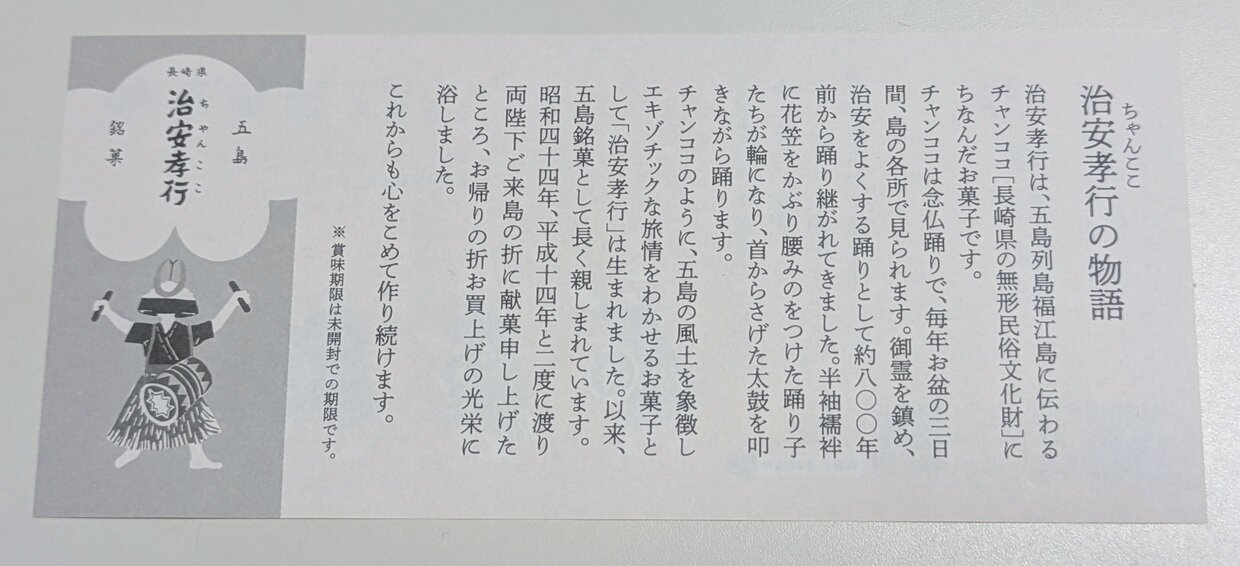 ちゃんここ
治安孝行の物語
治安孝行は、五島列島福江島に伝わる
チャンココ[長崎県の無形民俗文化財]に
ちなんだお菓子です。
チャンココは念仏踊りで、毎年お盆の三日
間、島の各所で見られます。御霊を鎮め、
治安をよくする踊りとして約八〇〇年
前から踊り継がれてきました。半袖襦袢
に花笠をかぶり腰みのをつけた踊り子
たちが輪になり、首からさげた太鼓を叩
きながら踊ります。
チャンココのように、五島の風土を象徴し
エキゾチックな旅情をわかせるお菓子と
して「治安孝行」は生まれました。以来、
五島銘菓として長く親しまれています。
昭和四十四年、平成十四年と二度に渡り
両陛下ご来島の折に献菓申し上げた
ところ、お帰りの折お買上げの光栄に
浴しました。
これからも心をこめて作り続けます。
※ 賞味期限は未開封での期限です。
長崎県
五島
ちゃんここ
治安孝行
銘菓